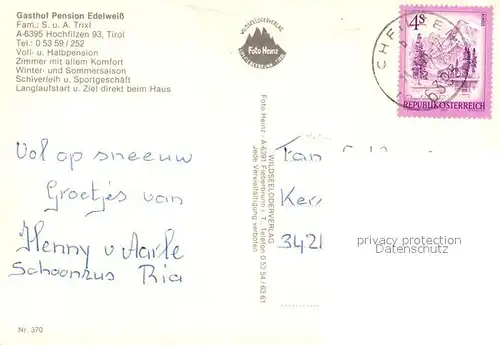 Gasthof Pension Edelweiß
Fam.: S. u. A. Trixl
A-6395 Hochfilzen 93, Tirol
Tel.: 0 53 59 / 252
Voll- u. Halbpension
Zimmer mit allem Komfort
Winter- und Sommersaison
Schiverleih u. Sportgeschäft
Langlaufstart u. Ziel direkt beim Haus
WILDSEELODERVERLAG
Foto Heinz
4 S
6395
REPUBLIK ÖSTERREICH
Vol op sneeuw
Groetjes van
Henny v Aarle
Schoonzus Ria
WILDSEELODERVERLAG
Foto Heinz · A-6391 Fieberbrunn i. T., Telefon 0 53 54 / 63 61
Jede Vervielfältigung verboten
Ker
3421
privacy protection
Datenschutz
Nr. 370